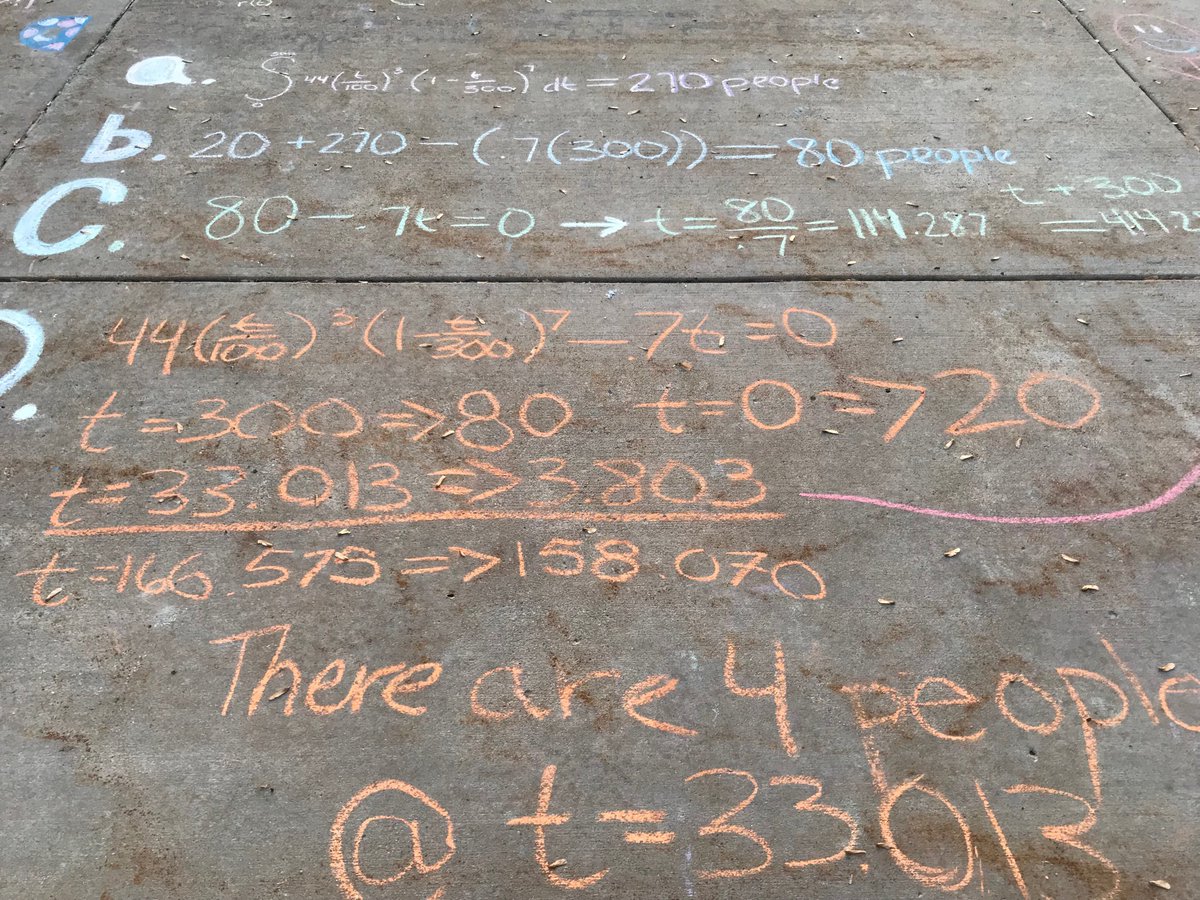 a. ∫₀³⁰⁰ 44(t/100)³ (1 - t/300)⁷ dt = 270 people
b. 20 + 270 - (.7(300)) = 80 people
C. 80 - .7t = 0 → t = 80/.7 = 114.287 t + 300 = 414.2
). 44(t/100)³ (1 - t/300)⁷ - .7t = 0
t = 300 => 80 t = 0 => 20
t = 33.013 => 3.803
t = 166.575 => 158.070
There are 4 people
@ t = 33.013